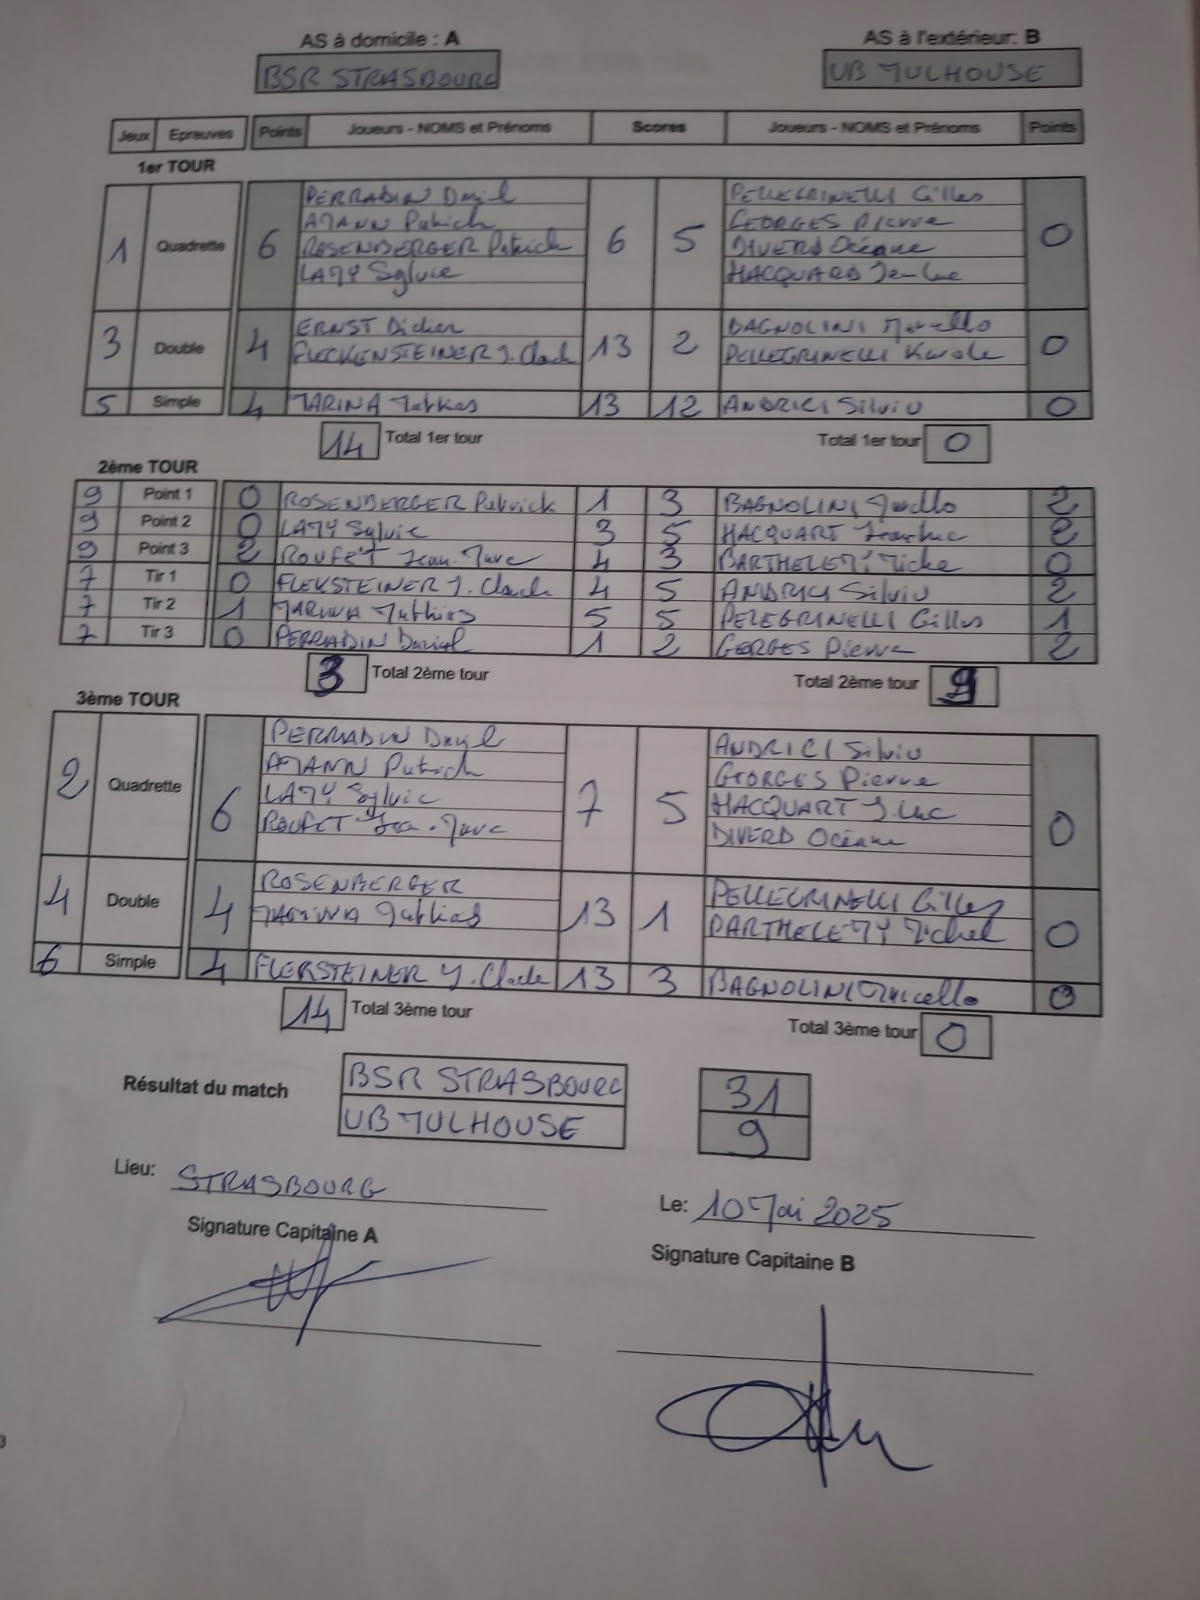 AS à domicile : A
AS à l'extérieur: B
BSR STRASBOURG
UB MULHOUSE
Jeux Epreuves Points Joueurs - NOMS et Prénoms Scores Joueurs - NOMS et Prénoms Points
1er TOUR
1 Quadrette 6 6 5 0
PERRADIN Daniel PELLEGRINELLI Gilles
AMANN Patrick GEORGES Pierre
ROSENBERGER Patrick DIVERD Océane
LAMY Sylvie HACQUARD Jean Luc
3 Double 4 13 2 0
ERNST Didier BAGNOLINI Marcello
FLECKENSTEINER J. Claude PELLEGRINELLI
5 Simple 4 MARINA Mathias 13 12 ANDRICI Silviu 0
14 Total 1er tour Total 1er tour 0
2ème TOUR
9 Point 1 0 ROSENBERGER Patrick 1 3 BAGNOLINI Marcello 2
9 Point 2 0 LAMY Sylvie 3 5 HACQUART Jean Luc 2
9 Point 3 2 ROUFET Jean-Marc 4 3 BARTHELEMY Michel 0
7 Tir 1 0 FLEKSTEINER J. Claude 4 5 ANDRICI Silviu 2
7 Tir 2 1 MARINA Mathias 5 5 PELEGRINELLI Gilles 1
7 Tir 3 0 PERRADIN Daniel 1 2 GEORGES Pierre 2
3 Total 2ème tour Total 2ème tour 9
3ème TOUR
2 Quadrette 6 7 5 0
PERRADIN Daniel ANDRICI Silviu
AMANN Patrick GEORGES Pierre
LAMY Sylvie HACQUART J.Luc
ROUFET Jean-Marc DIVERD Océane
4 Double 4 13 1 0
ROSENBERGER PELLEGRINELLI Gilles
MARINA Mathias BARTHELEMY Michel
6 Simple 4 FLERSTEINER J. Claude 13 3 BAGNOLINI Marcello 0
14 Total 3ème tour Total 3ème tour 0
Résultat du match BSR STRASBOURG 31
UB MULHOUSE 9
Lieu: STRASBOURG
Le: 10 Mai 2025
Signature Capitaine A
Signature Capitaine B
3